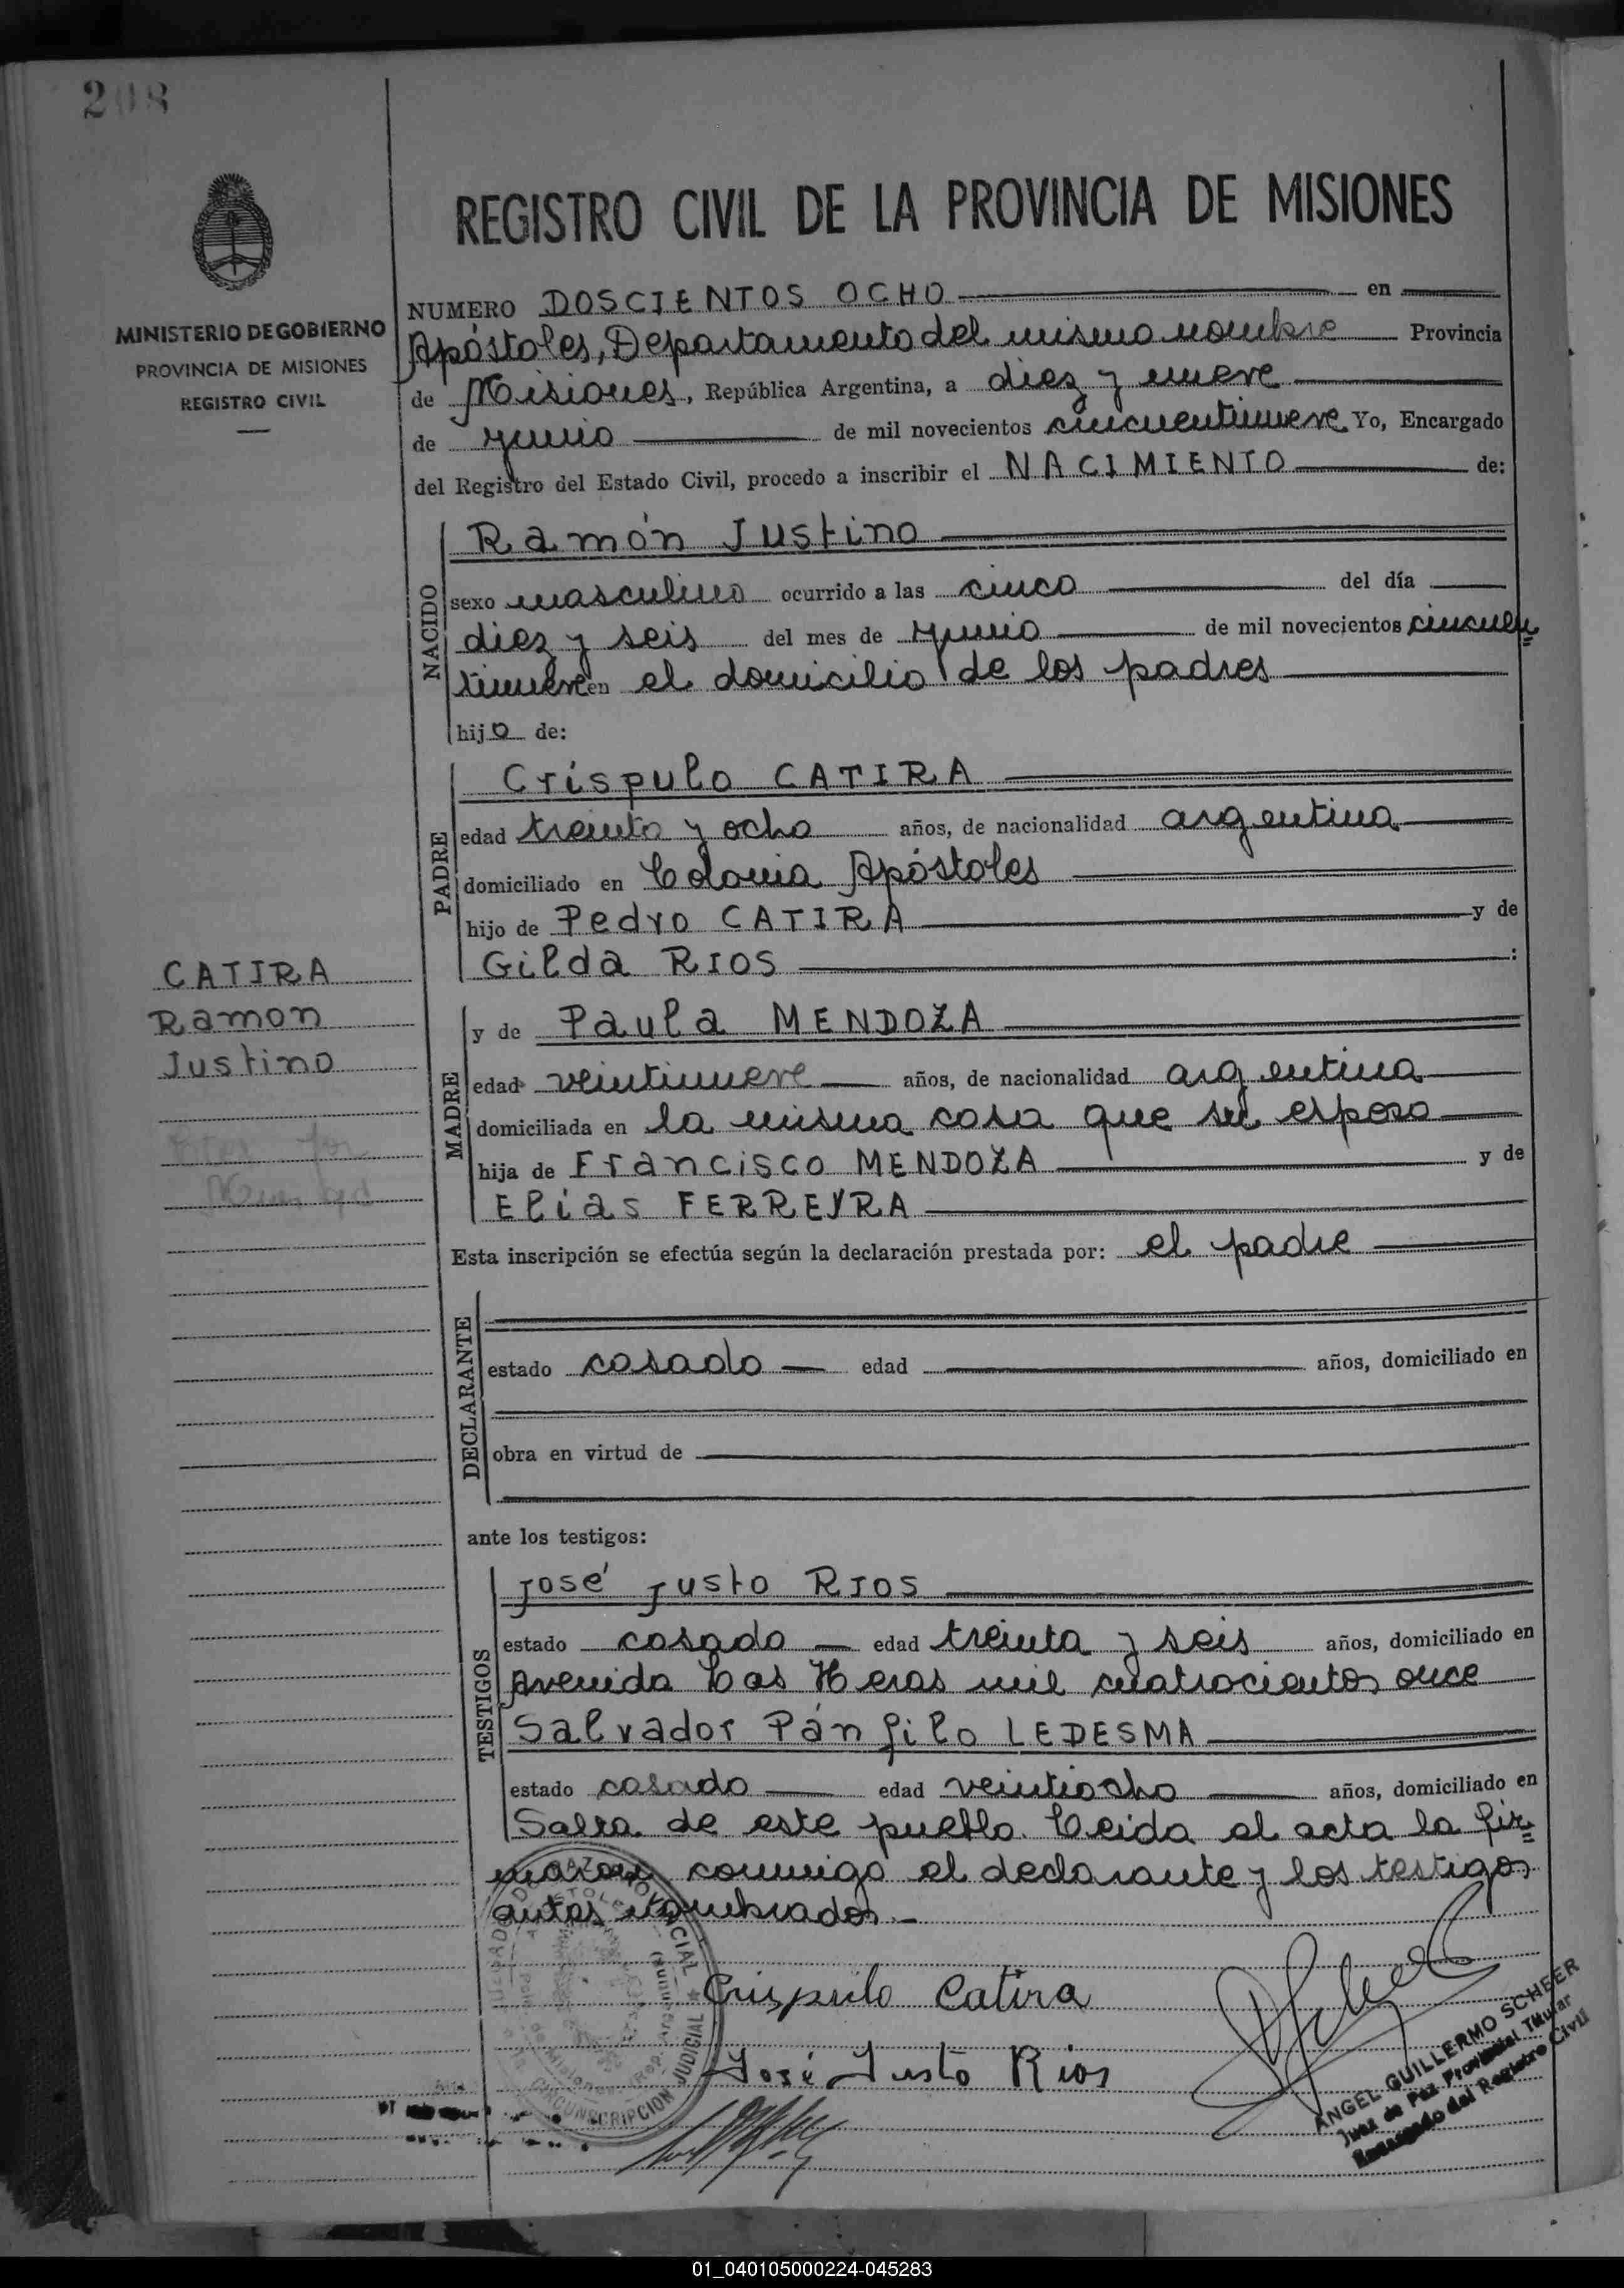 208
REGISTRO CIVIL DE LA PROVINCIA DE MISIONES
MINISTERIO DE GOBIERNO
PROVINCIA DE MISIONES
REGISTRO CIVIL
NUMERO DOSCIENTOS OCHO en
Apóstoles, Departamento del mismo nombre Provincia
de Misiones, República Argentina, a diez y nueve
de junio de mil novecientos cincuentinueve Yo, Encargado
del Registro del Estado Civil, procedo a inscribir el NACIMIENTO de:
NACIDO
Ramón Justino
sexo masculino ocurrido a las cinco del día
diez y seis del mes de junio de mil novecientos cincuen=
tinueve en el domicilio de los padres
hijo de:
PADRE
Críspulo CATIRA
edad treinta y ocho años, de nacionalidad argentina
domiciliado en Colonia Apóstoles
hijo de Pedro CATIRA y de
Gilda RIOS :
CATIRA
Ramon
Justino
MADRE
y de Paula MENDOZA
edad veintinueve años, de nacionalidad argentina
domiciliada en la misma casa que su esposo
hija de Francisco MENDOZA y de
Elías FERREYRA
Esta inscripción se efectúa según la declaración prestada por: el padre
DECLARANTE
estado casado edad años, domiciliado en
obra en virtud de
ante los testigos:
TESTIGOS
José Justo RIOS
estado casado edad treinta y seis años, domiciliado en
Avenida Las Heras mil cuatrocientos once
Salvador Pánfilo LEDESMA
estado casado edad veintiocho años, domiciliado en
Salta de este pueblo. Leida el acta la fir=
maron conmigo el declarante y los testigos
antes nombrados.-
Crispulo Catira
José Justo Rios
ANGEL GUILLERMO SCHEER
Juez de Paz Provincial Titular
Encargado del Registro Civil
CIRCUNSCRIPCION JUDICIAL
01_040105000224-045283